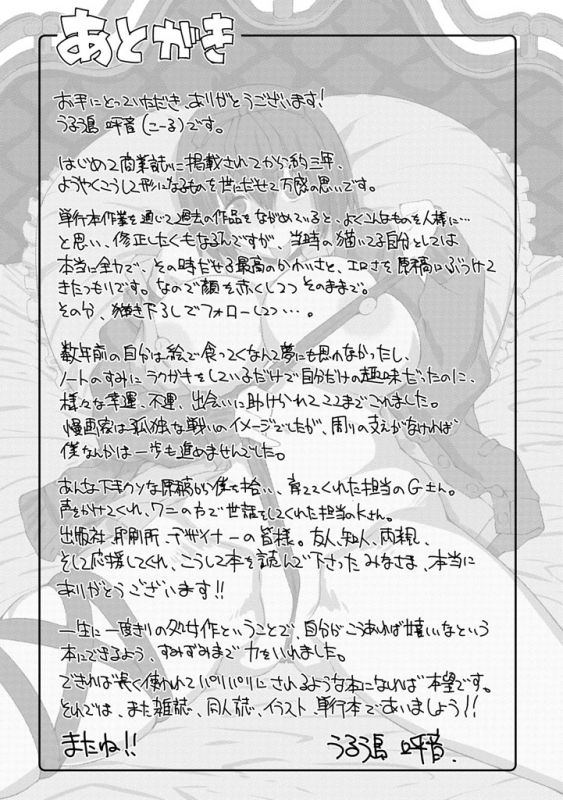 あとがき
お手にとっていただき、ありがとうございます!
うるう島 呼音(こーる)です。
はじめて商業誌に掲載されてから約三年、
ようやくこうして形になるものを世にだせて万感の思いです。
単行本作業を通じて過去の作品をながめていると、よくこんなものを人様に…
と思い、修正したくもなるんですが、当時の描いてる自分としては
本当に全力で、その時だせる最高のかわいさと、エロさを原稿にぶつけて
きたつもりです。なので顔を赤くしつつそのままで。
その分、描き下ろしでフォローしつつ・・・。
数年前の自分は絵で食ってくなんて夢にも思わなかったし、
ノートのすみにラクガキをしているだけで自分だけの趣味だったのに、
様々な幸運、不運、出会いに助けられてここまでこれました。
漫画家は孤独な戦いのイメージでしたが、周りの支えがなければ
僕なんかは一歩も進めませんでした。
あんな下手クソな原稿から僕を拾い、育ててくれた担当のGさん。
声をかけてくれ、ワニの方で世話をしてくれた担当のKさん。
出版社、印刷所、デザイナーの皆様。友人、知人、両親、
そして応援してくれ、こうして本を読んで下さったみなさま、本当に
ありがとうございます!!
一生に一度きりの処女作ということで、自分がこうあれば嬉しいなという
本にできるよう、すみずみまで力をいれました。
できれば長く使われてパリパリにされるような本になれば本望です。
それでは、また雑誌、同人誌、イラスト、単行本であいましょう!!
またね!!
うるう島 呼音.